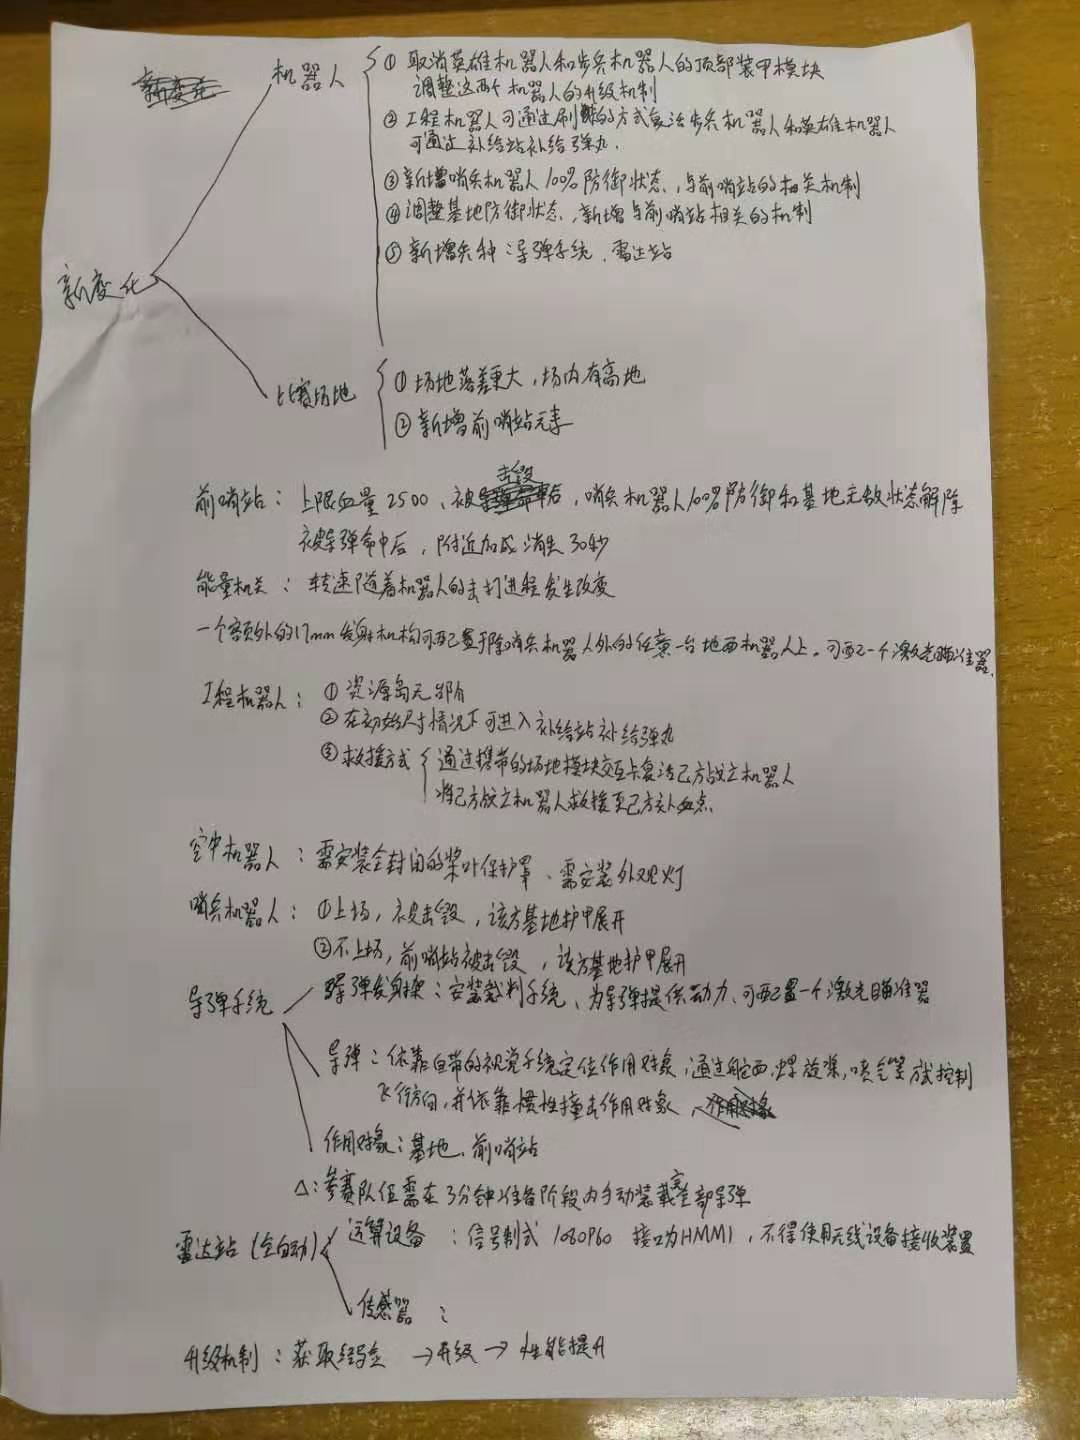 新变化
机器人
① 取消英雄机器人和步兵机器人的顶部装甲模块
调整这两个机器人的升级机制
② 工程机器人可通过刷的方式复活步兵机器人和英雄机器人
可通过补给站补给弹丸.
③ 新增哨兵机器人100%防御状态,与前哨站的相关机制
④ 调整基地防御状态,新增与前哨站相关的机制
⑤ 新增兵种:导弹系统、雷达站
新变化
比赛场地
① 场地落差更大,场内有高地
② 新增前哨站元素
前哨站: 上限血量2500、被击毁后,哨兵机器人100%防御和基地无敌状态解除
被导弹命中后,附近加成消失30秒
能量机关: 转速随着机器人的击打进程发生改变
一个额外的17mm发射机构可配置于除哨兵机器人外的任意一台地面机器人上。可配一个激光瞄准器.
工程机器人: ① 资源岛无
② 在初始尺寸情况下可进入补给站补给弹丸
③ 救援方式 通过携带的场地模块交互卡复活己方战亡机器人
将己方战亡机器人救援至己方补血点.
空中机器人: 需安装全封闭的桨叶保护罩、需安装外观灯
哨兵机器人: ①上场,被击毁,该方基地护甲展开
②不上场,前哨站被击毁,该方基地护甲展开
导弹系统
导弹发射架:安装裁判系统、为导弹提供动力、可配置一个激光瞄准器
导弹:依靠自带的视觉系统定位作用对象,通过舵面,螺旋桨,喷气等方式控制
飞行方向,并依靠惯性撞击作用对象
作用对象:基地、前哨站
△:参赛队伍需在3分钟准备阶段内手动装载完全部导弹
雷达站(全自动) 运算设备 :信号制式 1080P60 接口为HMMI,不得使用无线设备接收装置
传感器 :
升级机制:获取经验 → 升级 → 性能提升